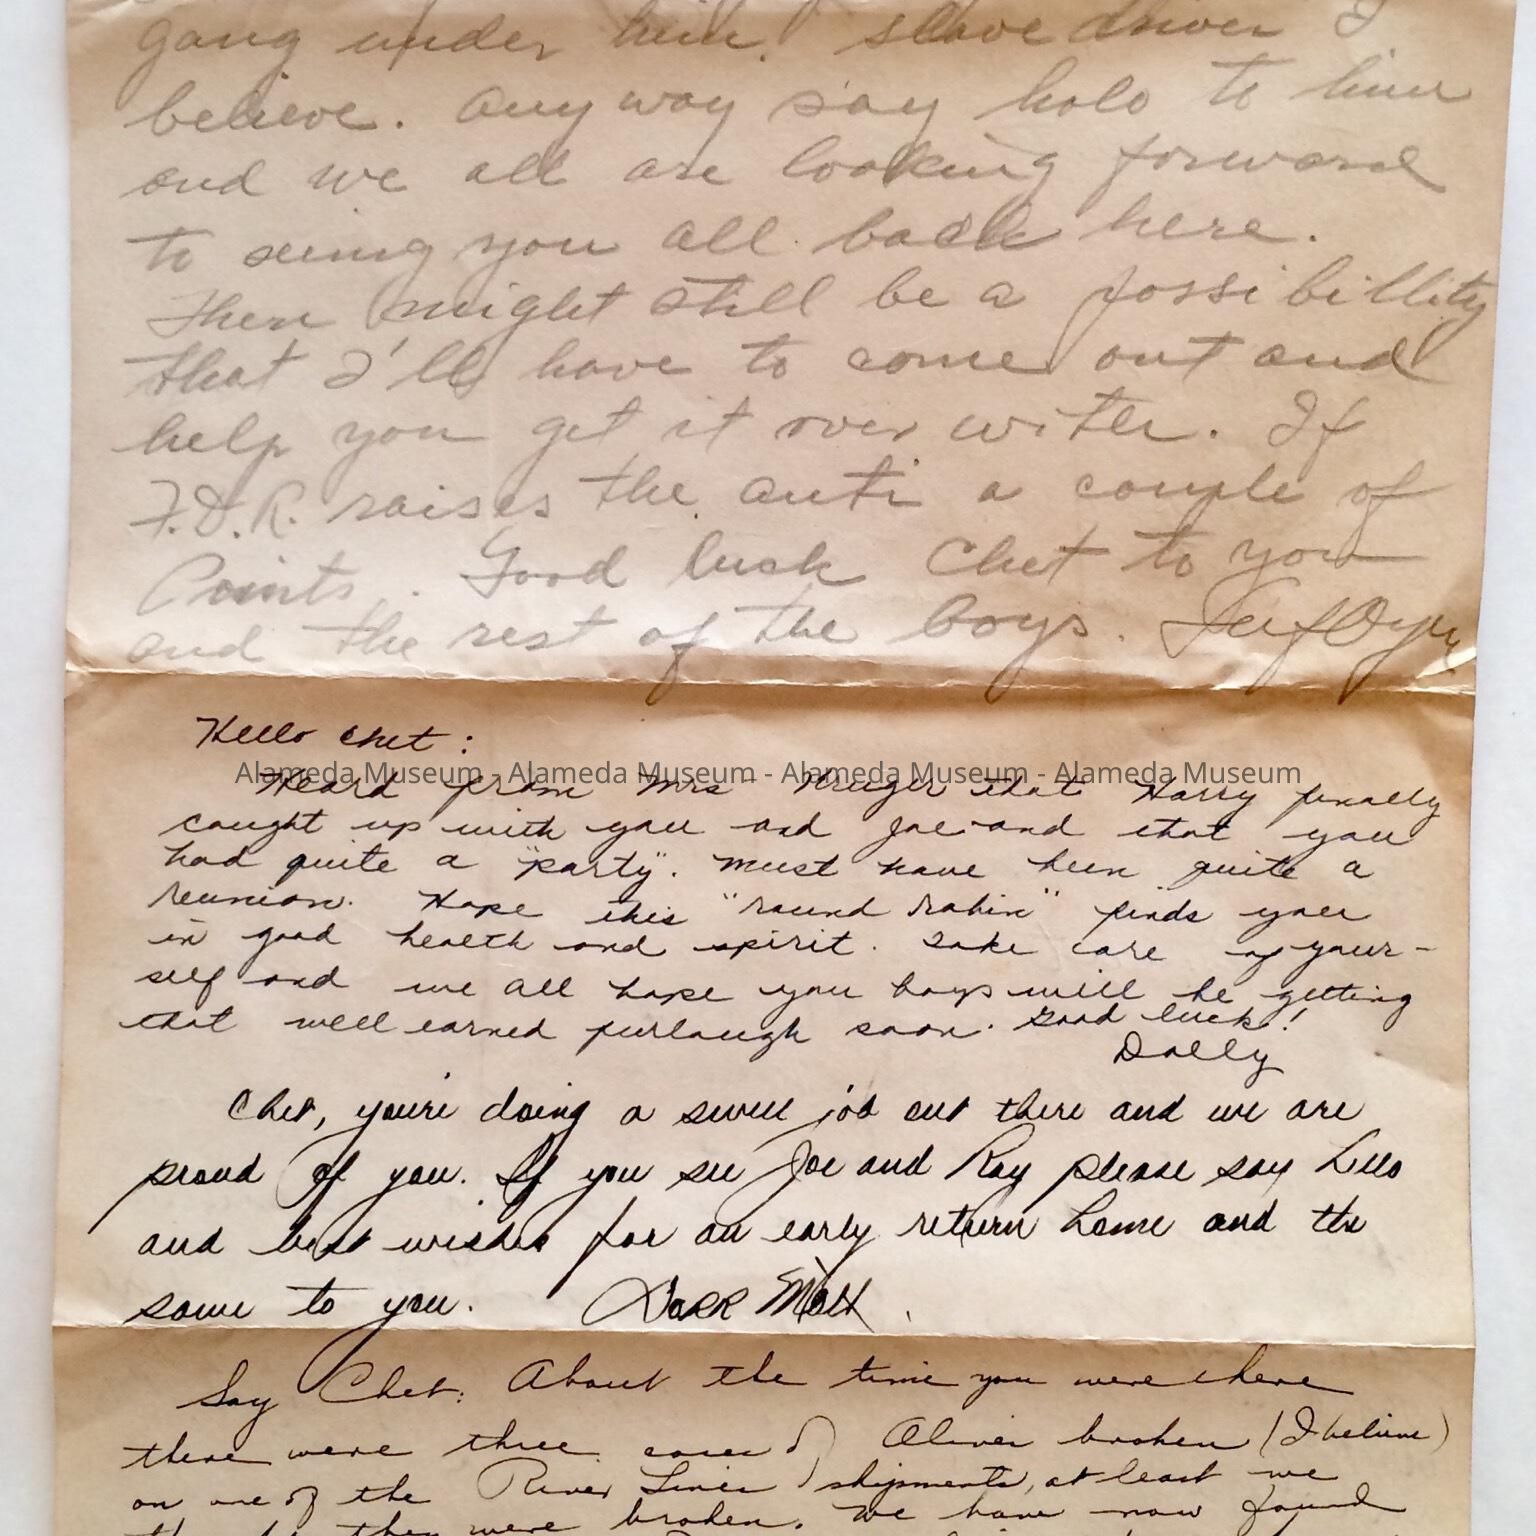 gang under him. slave driver I
believe. Any way say holo to him
and we all are looking forward
to seing you all back here.
There might still be a possibillity
that I'll have to come out and
help you get it over with. If
F.D.R. raises the anti a couple of
Points. Good luck Chet to you
and the rest of the boys.
Hello Chet:
Alameda Museum - Alameda Museum - Alameda Museum - Alameda Museum
Heard from Mrs Kruger that Harry finally
caught up with you and Joe and that you
had quite a "party". Must have been quite a
reunion. Hope this "round robin" finds you
in good health and spirit. Take care of your-
self and we all hope you boys will be getting
that well earned furlough soon. Good luck!
Dolly
Chet, you're doing a swell job out there and we are
proud of you. If you see Joe and Ray please say hello
and best wishes for an early return home and the
same to you.
Say Chet: About the time you were here
there were three cases of Olives broken (I believe)
on one of the River Lines shipments, at least we
they were broken. We have now found